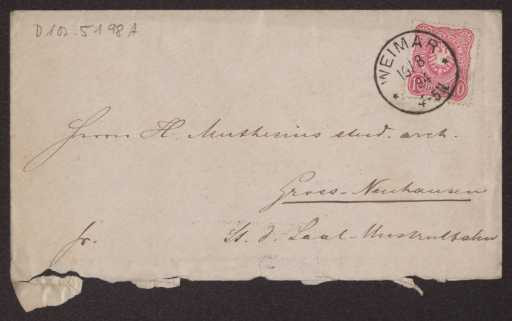 D 102-5198A
WEIMAR
16/8
84
4-5N.
10
Herrn H. Muthesius stud. arch.
Gross-Neuhausen
fr.
St. d. Saal-Unstrutbahn